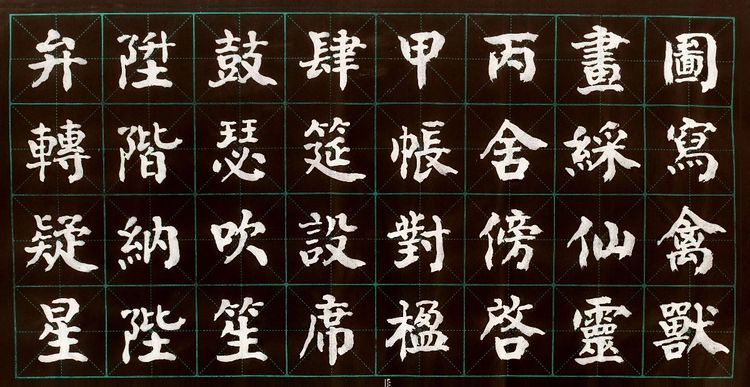 圖寫禽獸
畫綵仙靈
丙舍傍啓
甲帳對楹
肆筵設席
鼓瑟吹笙
陞階納陛
弁轉疑星